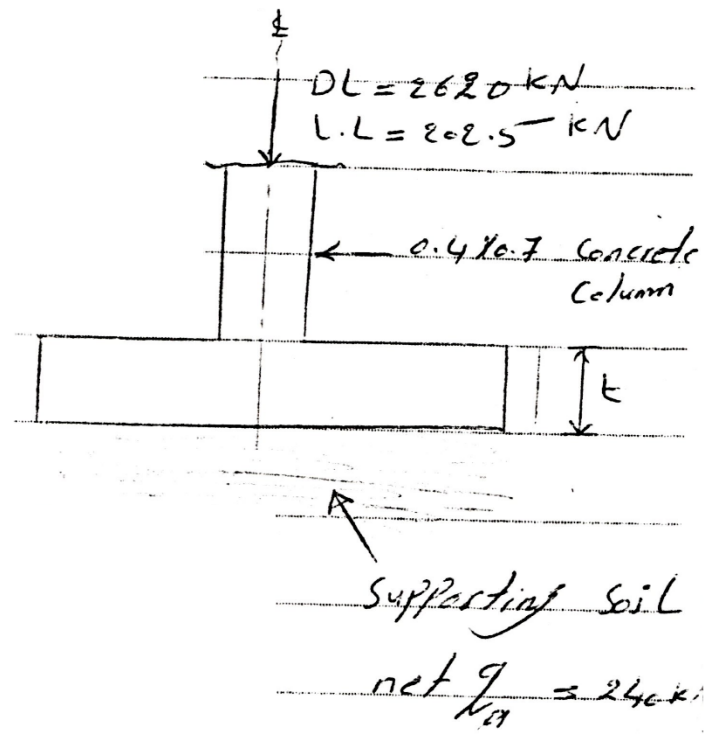 DL = 2620 KN
L.L = 202.5 KN
0.4*0.7 Concrete
Column
t
Supporting Soil
net q = 240 k